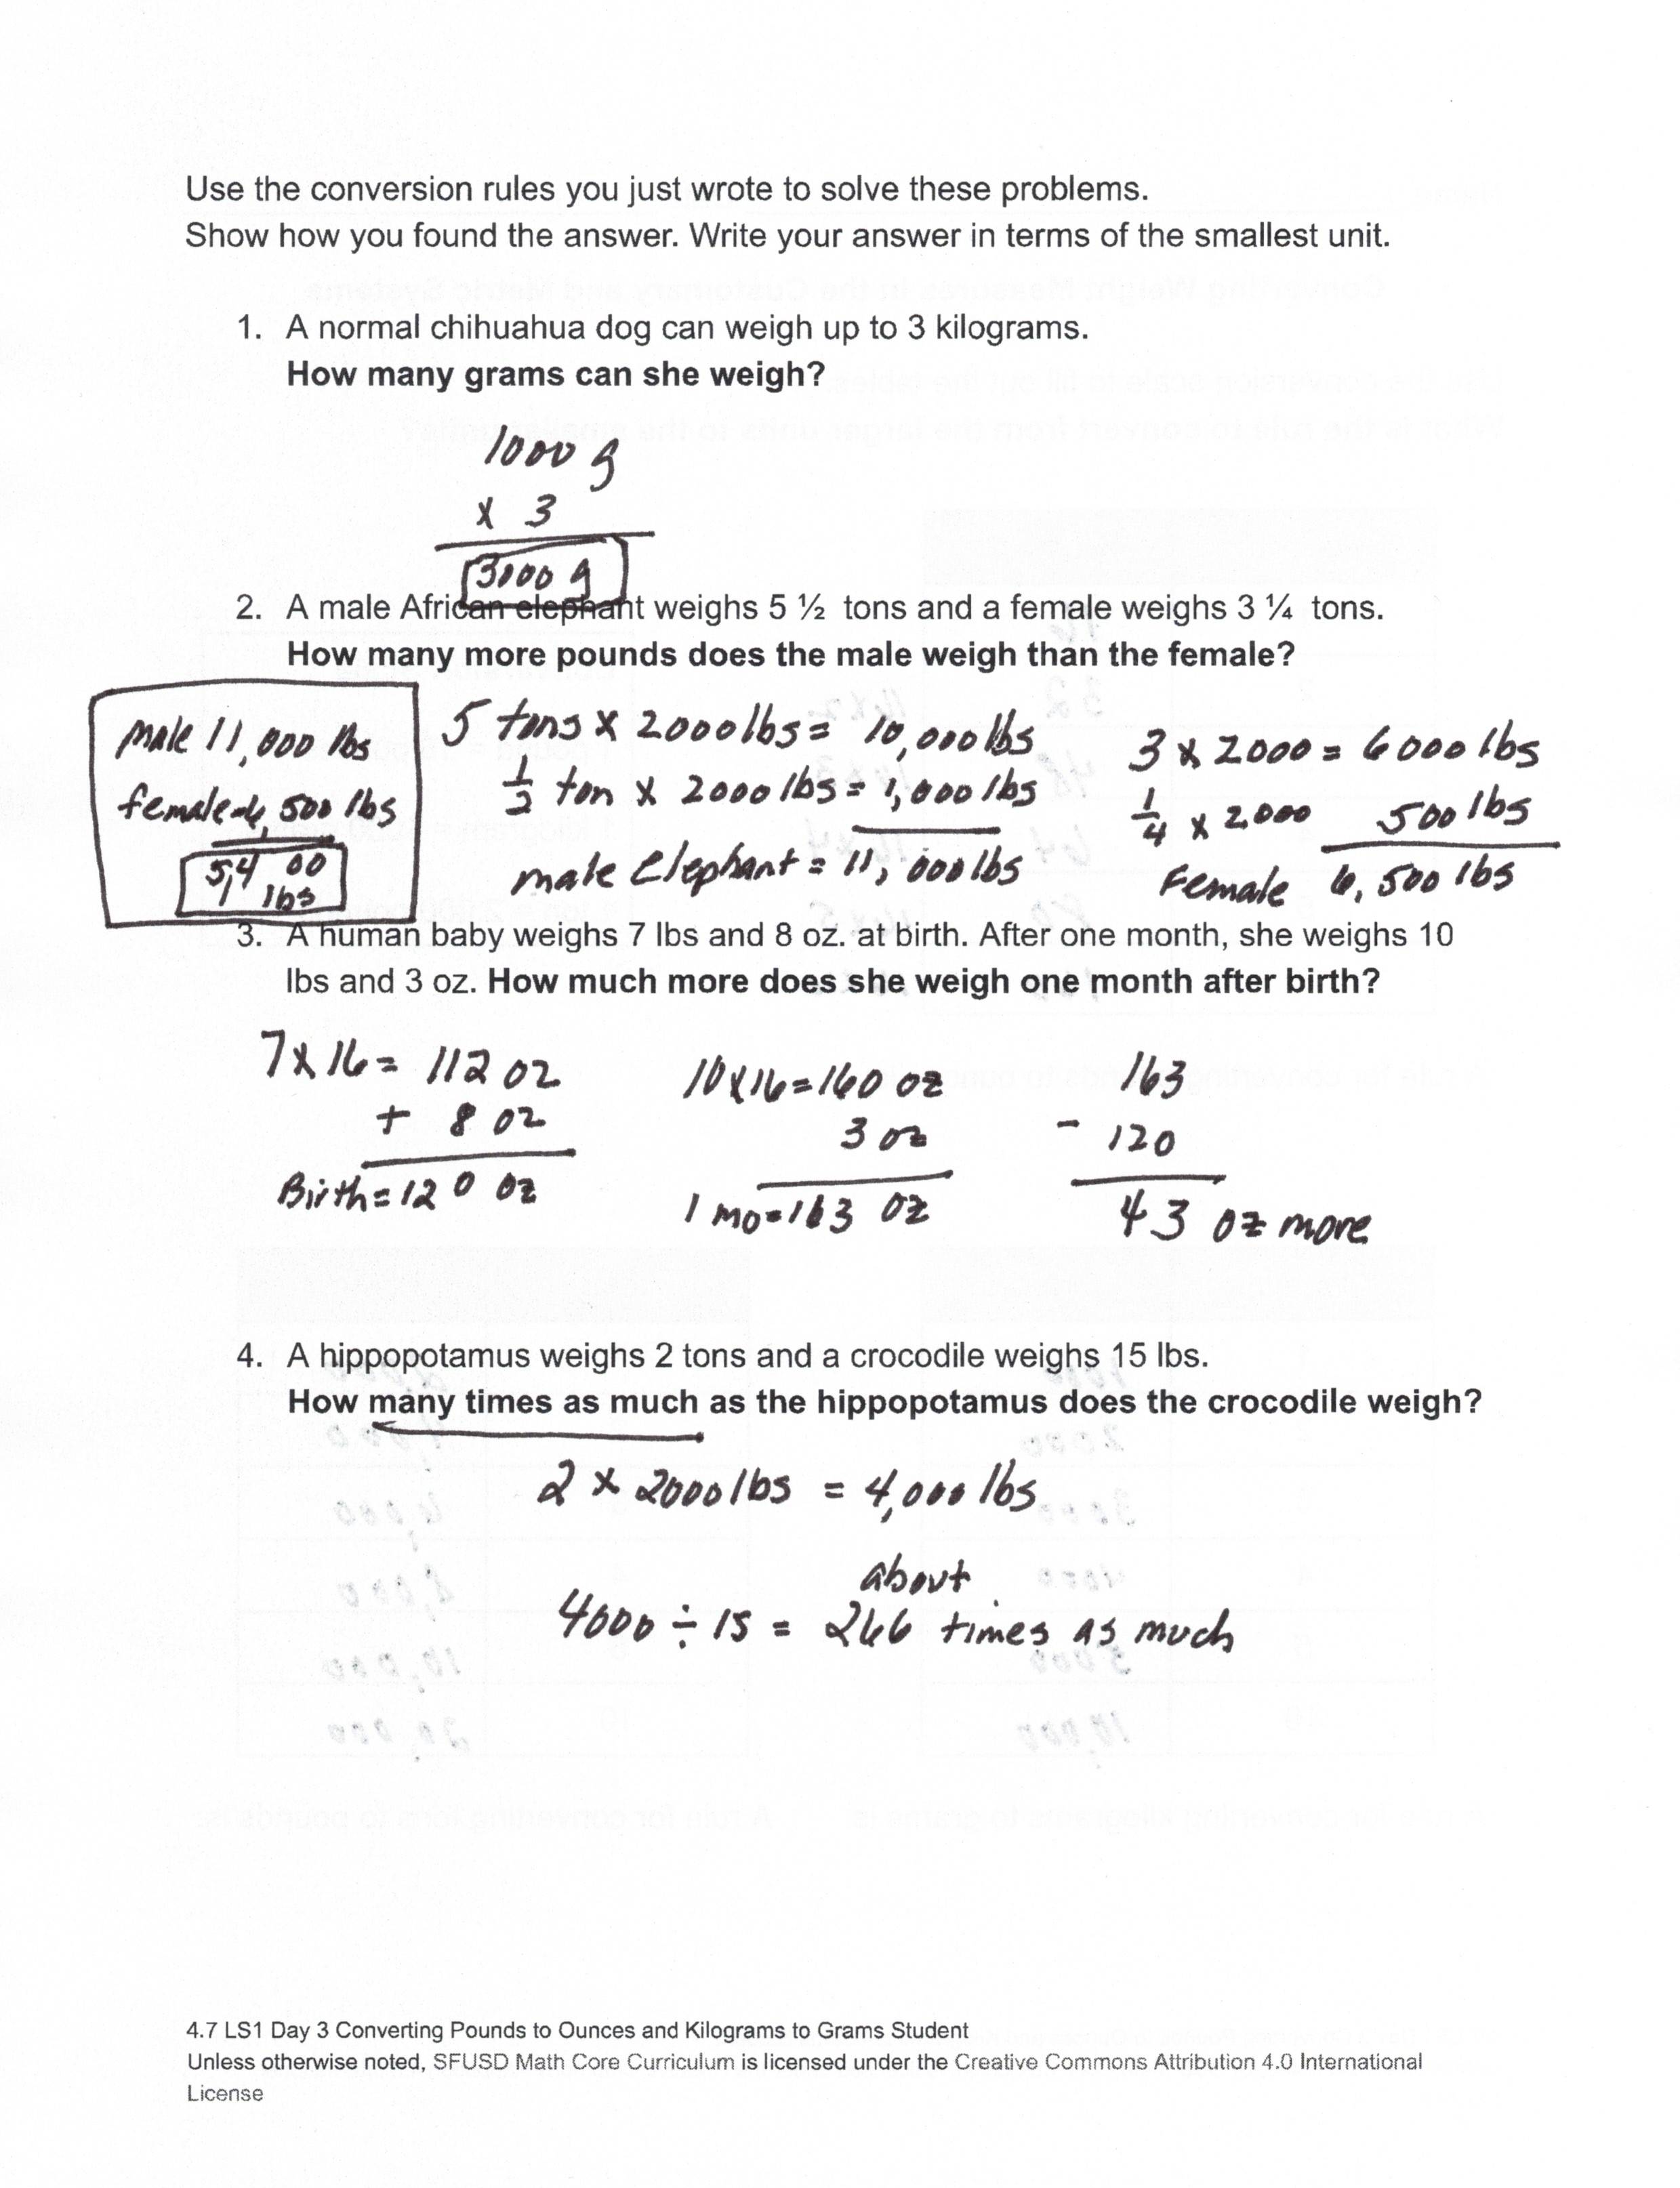 Use the conversion rules you just wrote to solve these problems.
Show how you found the answer. Write your answer in terms of the smallest unit.
1. A normal chihuahua dog can weigh up to 3 kilograms.
How many grams can she weigh?
1000 g
x 3
3000 g
2. A male African elephant weighs 5 ½ tons and a female weighs 3 ¼ tons.
How many more pounds does the male weigh than the female?
male 11,000 lbs
female - 6,500 lbs
5,400 lbs
5 tons x 2000 lbs = 10,000 lbs
1/2 ton x 2000 lbs = 1,000 lbs
male elephant = 11,000 lbs
3 x 2000 = 6000 lbs
1/4 x 2000 500 lbs
Female 6,500 lbs
3. A human baby weighs 7 lbs and 8 oz. at birth. After one month, she weighs 10
lbs and 3 oz. How much more does she weigh one month after birth?
7 x 16 = 112 oz
+ 8 oz
Birth = 120 oz
10 x 16 = 160 oz
3 oz
1 mo = 163 oz
163
- 120
43 oz more
4. A hippopotamus weighs 2 tons and a crocodile weighs 15 lbs.
How many times as much as the hippopotamus does the crocodile weigh?
2 x 2000 lbs = 4,000 lbs
about
4000 ÷ 15 = 266 times as much
4.7 LS1 Day 3 Converting Pounds to Ounces and Kilograms to Grams Student
Unless otherwise noted, SFUSD Math Core Curriculum is licensed under the Creative Commons Attribution 4.0 International
License